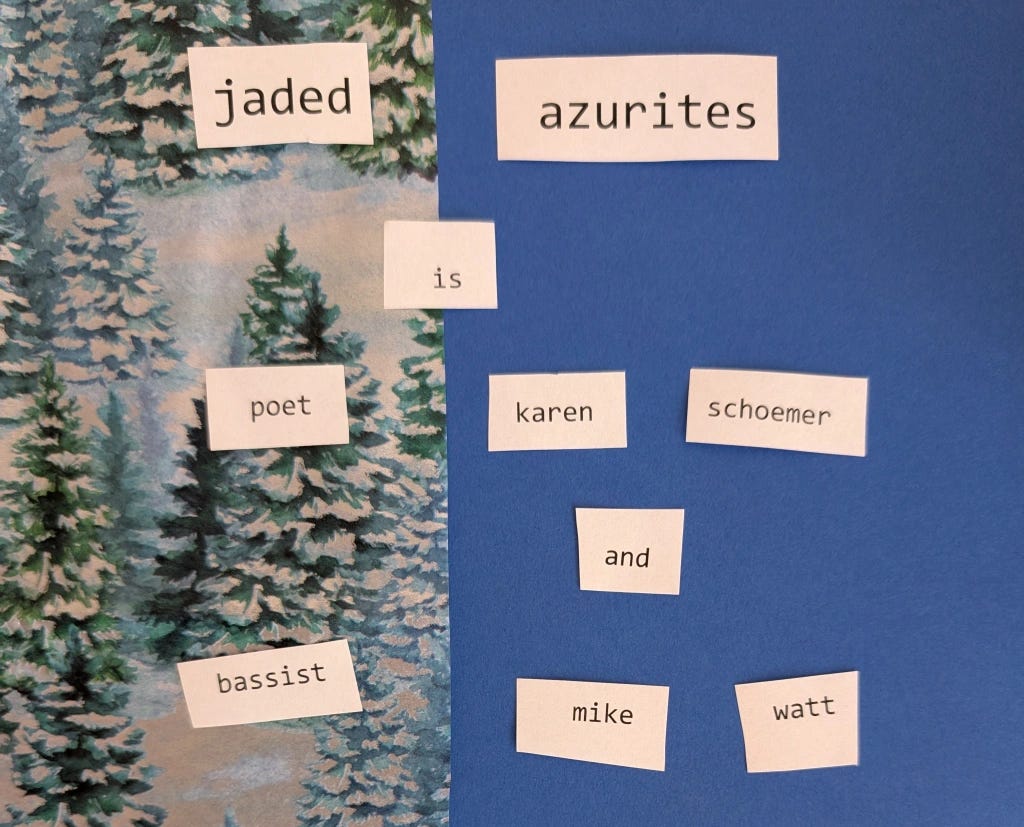 jaded azurites
is
poet karen schoemer
and
bassist mike watt